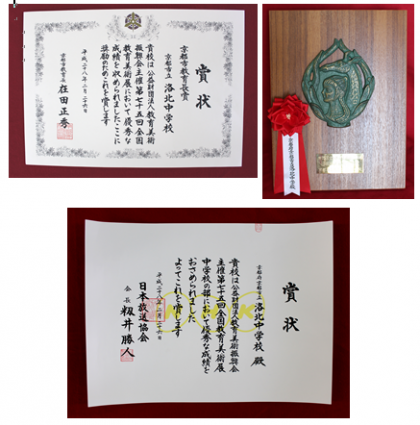 賞状
京都市教育長賞
京都市立 洛北中学校
貴校は公益財団法人教育美術
振興会主催第七十五回全国
教育美術展において優秀な
成績を収められましたここに
奨励のためこれを賞します
平成二十八年二月二十六日
京都市教育長
在田正秀
京都府京都市立洛北中学校
賞状
京都府京都市立
洛北中学校 殿
貴校は公益財団法人教育美術振興会
主催第七十五回全国教育美術展
中学校の部において優秀な成績を
おさめられました
よってこれを賞します
平成二十八年二月二十六日
日本放送協会
会長 籾井勝人